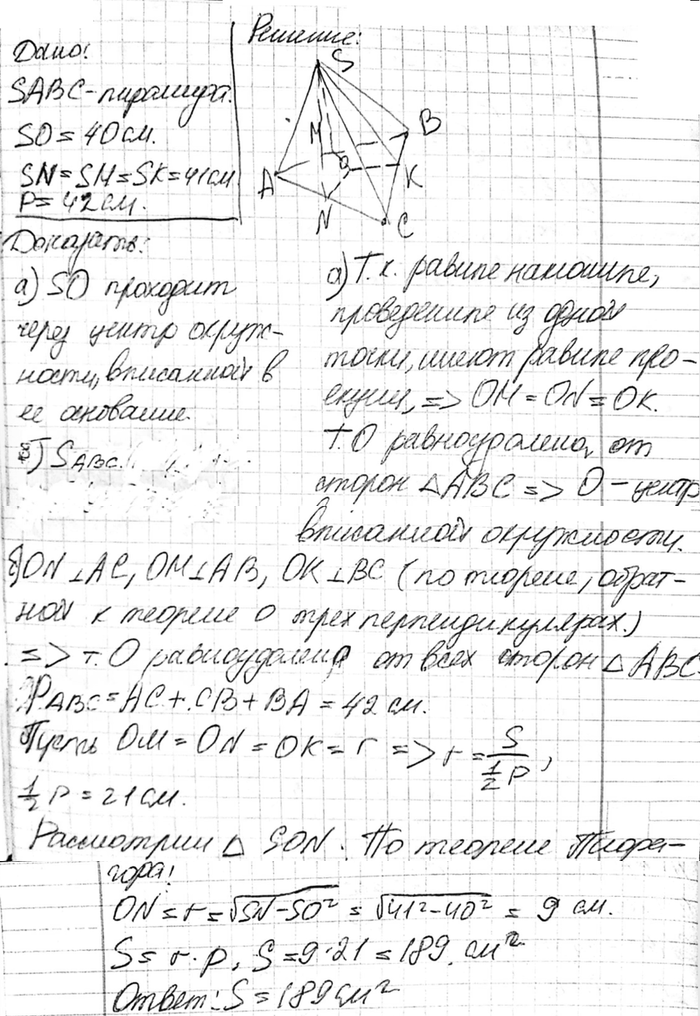 Дано:
SABC - пирамида.
SO = 40 см.
SN = SM = SK = 41 см
P = 42 см.
Доказать:
а) SO проходит
через центр окруж-
ности, вписанной в
ее основание.
б) S ABC.
Решение:
S
M
B
O
A
K
N
C
а) Т.к. равные наклонные,
проведенные из одной
точки, имеют равные про-
екции, => OM = ON = OK.
т. O равноудалена от
сторон △ABC => O - центр
вписанной окружности.
б) ON ⊥ AC, OM ⊥ AB, OK ⊥ BC (по теореме, обрат-
ной к теореме о трех перпендикулярах.)
=> т. O равноудалена от всех сторон △ ABC.
P ABC = AC + CB + BA = 42 см.
Пусть OM = ON = OK = r => r = S / ½ P,
½ P = 21 см.
Рассмотрим △ SON. По теореме Пифа-
гора:
ON = r = √SN - SO² = √41² - 40² = 9 см.
S = r · p, S = 9 · 21 = 189 см²
Ответ: S = 189 см²